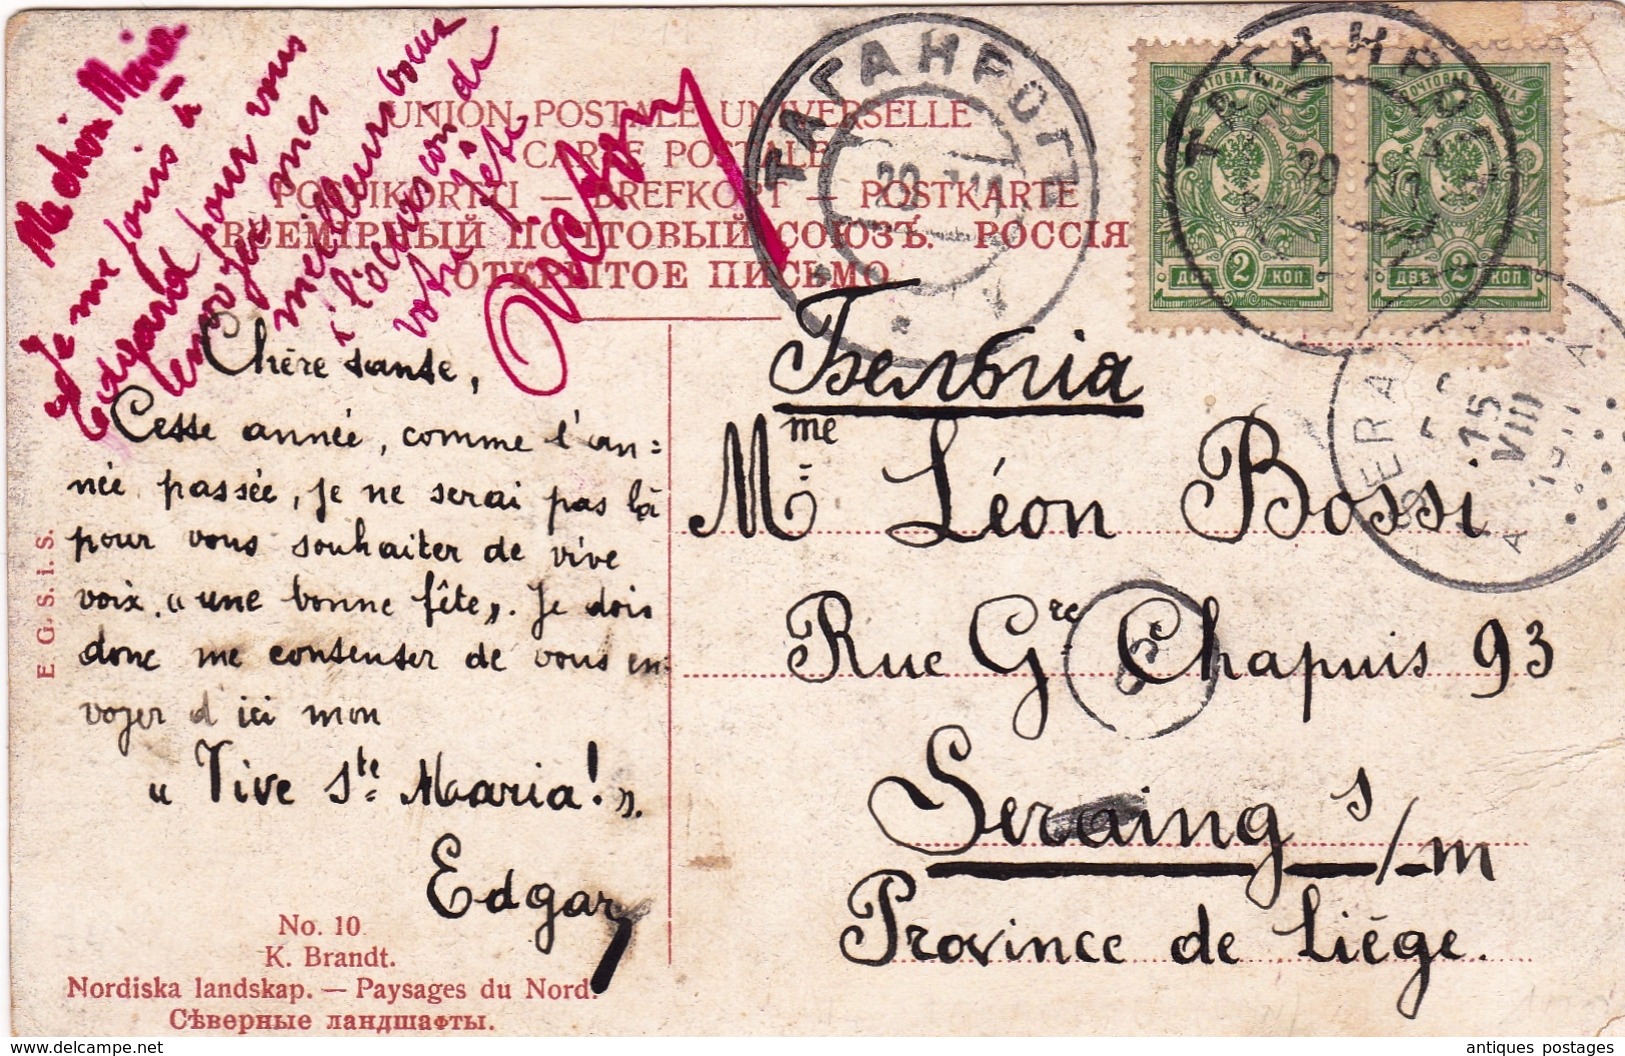 Ma chère Maria
Je me joins à
Edgard pour vous
envoyer mes
meilleurs voeux
à l'occasion de
votre fête
Victor
UNION POSTALE UNIVERSELLE
CARTE POSTALE
POSTIKORTTI — BREFKORT — POSTKARTE
ВСЕМІРНЫЙ ПОЧТОВЫЙ СОЮЗЪ. РОССІЯ
ОТКРЫТОЕ ПИСЬМО
ТАГАНРОГЪ
ПОЧТОВАЯ МАРКА
ДВѢ 2 КОП.
ПОЧТОВАЯ МАРКА
ДВѢ 2 КОП.
ТАГАНРОГЪ
15
VIII
Chère tante,
Cette année, comme l'an=
née passée, je ne serai pas là
pour vous souhaiter de vive
voix "une bonne fête". Je dois
donc me contenter de vous en-
voyer d'ici mon
"Vive Ste Maria!".
Edgar
Бельгія
Mme Léon Bossi
Rue Gre Chapuis 93
Seraing s/m
Province de Liége.
E. G. S. i. S.
No. 10
K. Brandt.
Nordiska landskap. — Paysages du Nord.
Сѣверные ландшафты.
delcampe.net
antiques postages